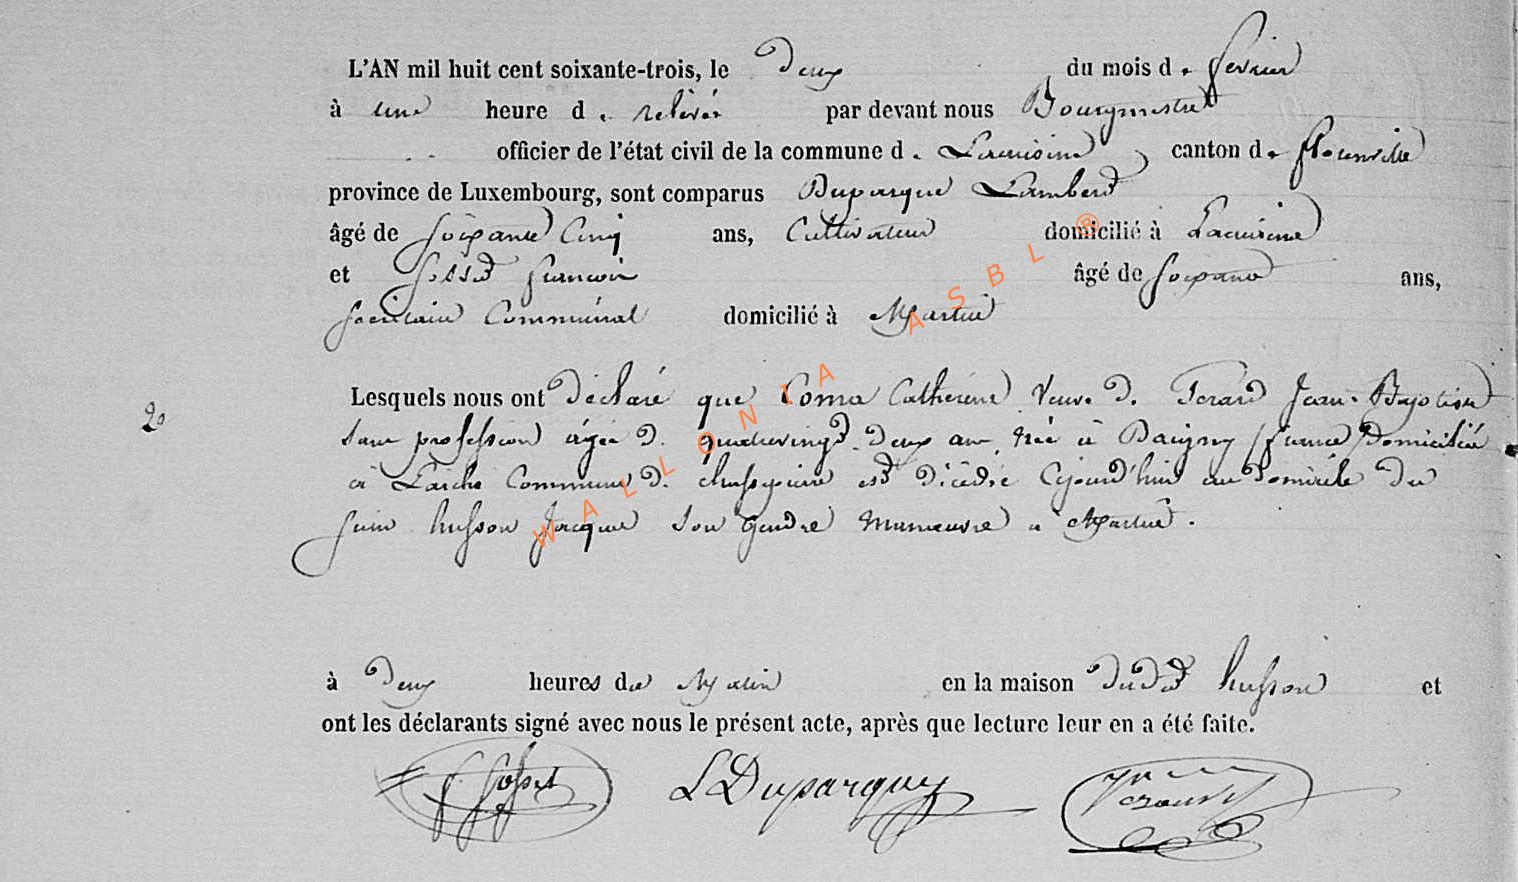 L'AN mil huit cent soixante-trois, le Deux du mois de fevrier
à une heure de relévée par devant nous Bourgmestre
officier de l'état civil de la commune de Lacuisine, canton de florenville
province de Luxembourg, sont comparus Duparque Lambert
âgé de soixante Cinq ans, Cultivateur domicilié à Lacuisine
et Gosset francois âgé de soixante ans,
secrétaire Communal domicilié à Martué
Lesquels nous ont déclaré que Coma Catherine Veuve de Jean-Baptiste
20
sans profession âgée de quatrevingt-deux ans, née à (france) domiciliée
à Laiche Commune de est décédée cejourd'hui au domicile du
husson Jacque son gendre manœuvre à Martué.
à deux heures de Matin en la maison dudit husson et
ont les déclarants signé avec nous le présent acte, après que lecture leur en a été faite.
Gosset L Duparque
WALLONIA ASBL ®